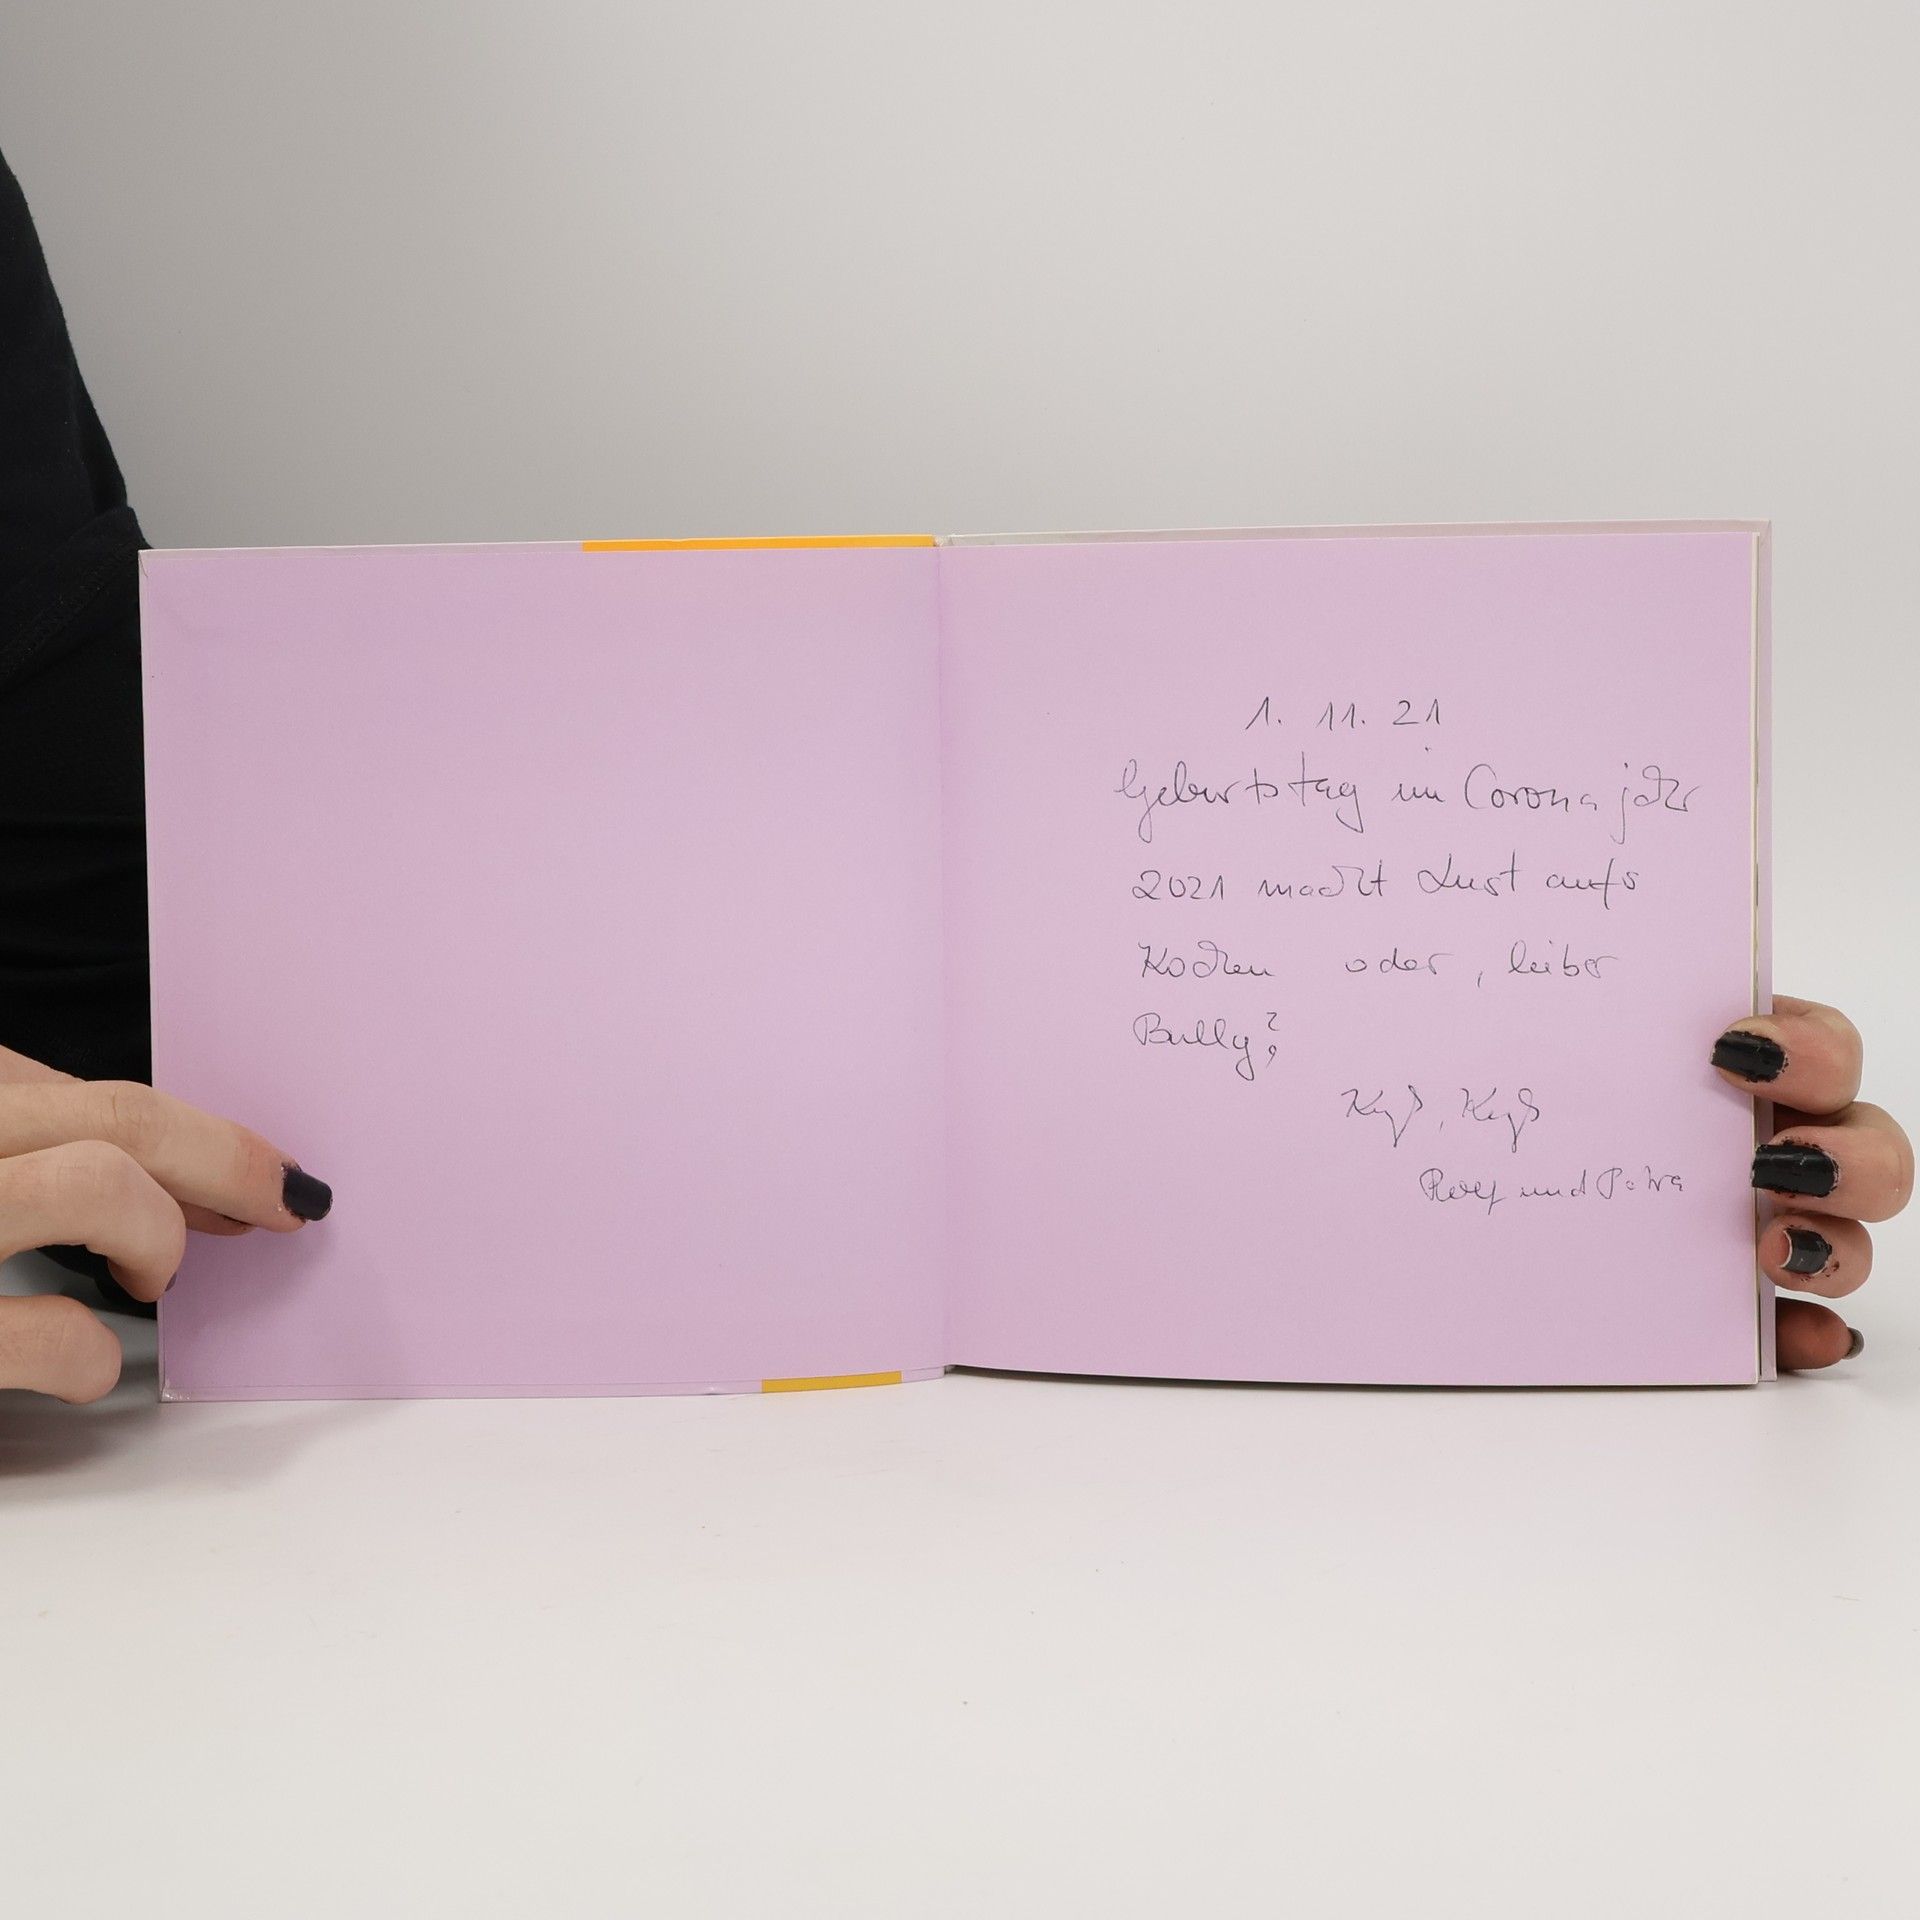 1. 11. 21
Geburtstag im Corona jahr
2021 macht Lust aufs
Kochen oder, lieber
Bully?
Kuß, Kuß
Rolf und Petra